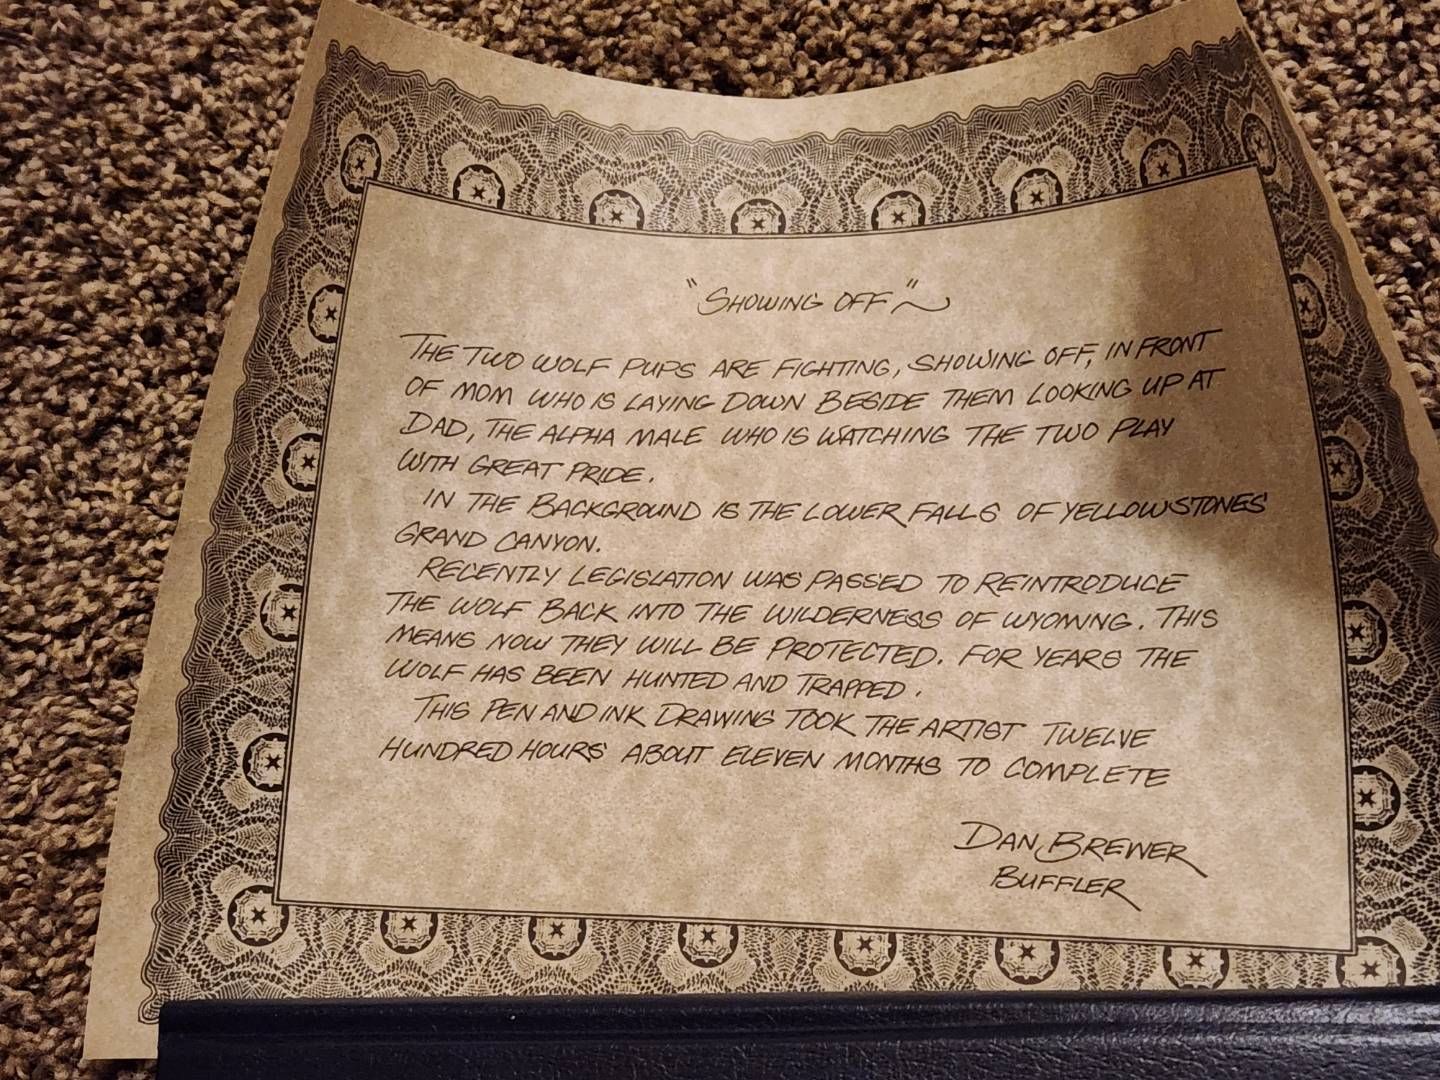 "SHOWING OFF"~
THE TWO WOLF PUPS ARE FIGHTING, SHOWING OFF, IN FRONT
OF MOM WHO IS LAYING DOWN BESIDE THEM LOOKING UP AT
DAD, THE ALPHA MALE WHO IS WATCHING THE TWO PLAY
WITH GREAT PRIDE.
IN THE BACKGROUND IS THE LOWER FALLS OF YELLOWSTONES'
GRAND CANYON.
RECENTLY LEGISLATION WAS PASSED TO REINTRODUCE
THE WOLF BACK INTO THE WILDERNESS OF WYOMING. THIS
MEANS NOW THEY WILL BE PROTECTED. FOR YEARS THE
WOLF HAS BEEN HUNTED AND TRAPPED.
THIS PEN AND INK DRAWING TOOK THE ARTIST TWELVE
HUNDRED HOURS ABOUT ELEVEN MONTHS TO COMPLETE
DAN BREWER
BUFFLER